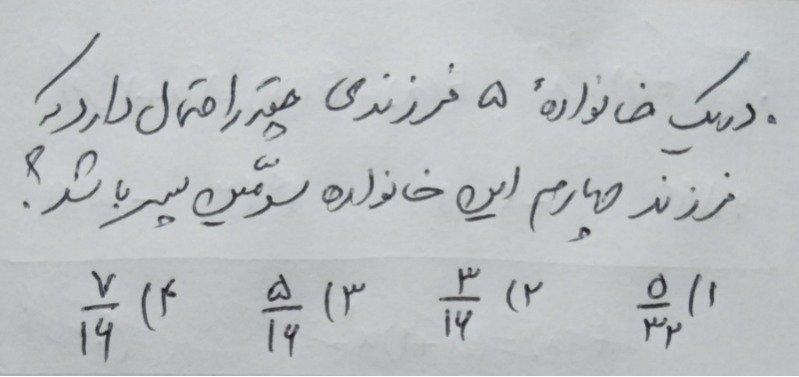 . در یک خانوادهٔ ۵ فرزندی چقدر احتمال دارد که
فرزند چهارم این خانواده سومّین پسر باشد؟
۱) ۵/۳۲ ۲) ۳/۱۶ ۳) ۵/۱۶ ۴) ۷/۱۶